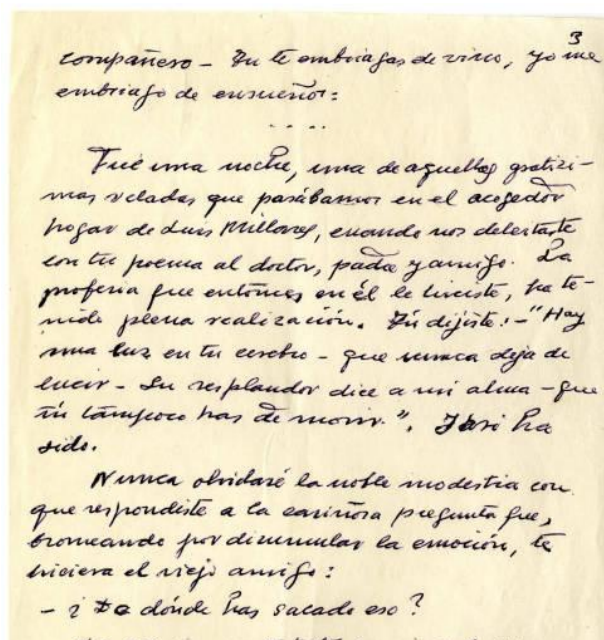 3
compañero - Tu te embriagas de vino, yo me
embriago de ensueños:
. . . .
Fué una noche, una de aquellas gratísi-
mas veladas que pasábamos en el acogedor
hogar de Luis Millares, cuando nos deleitaste
con tu poema al doctor, padre y amigo. La
profecía que entonces en él le hiciste, ha te-
nido plena realización. Tú dijiste: - "Hay
una luz en tu cerebro - que nunca deja de
lucir - Su resplandor dice a mi alma - que
tú tampoco has de morir.". Y así ha
sido.
Nunca olvidaré la noble modestia con
que respondiste a la cariñosa pregunta que,
bromeando por disimular la emoción, te
hiciera el viejo amigo:
- ¿De dónde has sacado eso?